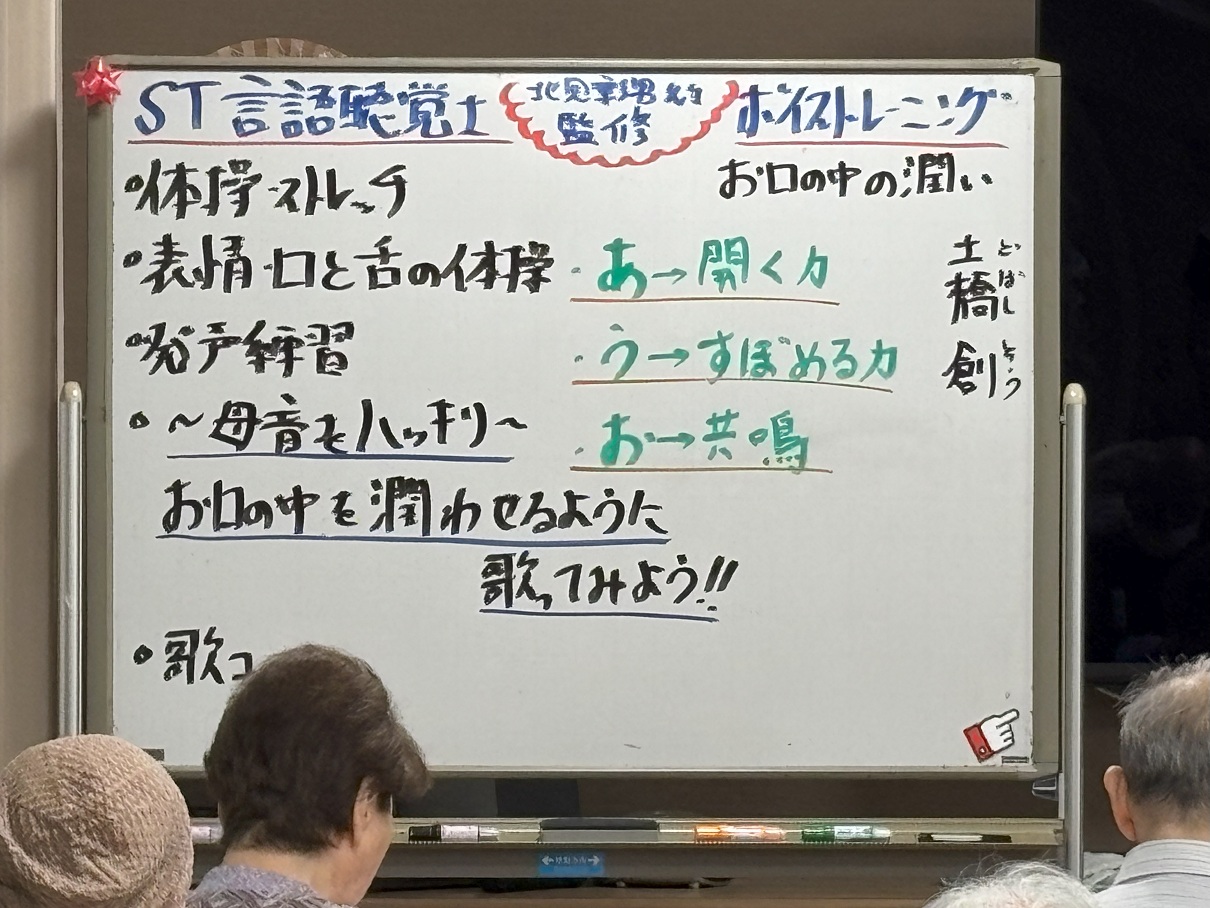 ST言語聴覚士
監修
ボイストレーニング
・体操・ストレッチ
お口の中の潤い
・表情・口と舌の体操
・あ→開く力
土橋 創
どばし そう
・発声練習
・う→すぼめる力
・～母音もハッキリ～
・お→共鳴
お口の中を潤わせるように
歌ってみよう!!
・歌コ